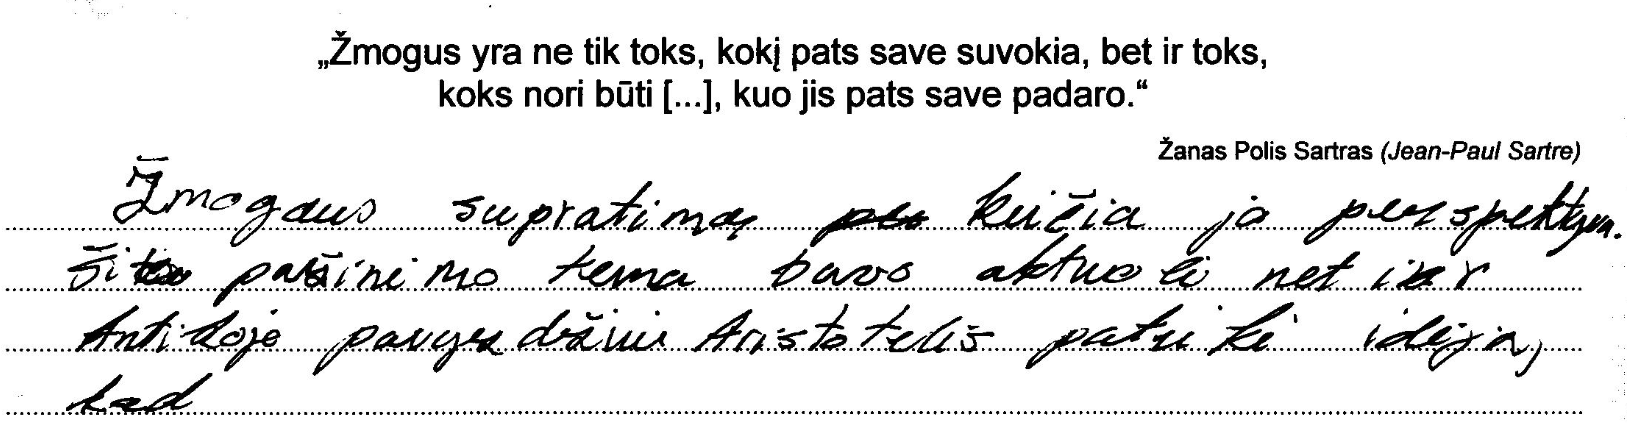 „Žmogus yra ne tik toks, kokį pats save suvokia, bet ir toks,
koks nori būti [...], kuo jis pats save padaro.“
Žanas Polis Sartras (Jean-Paul Sartre)
Žmogaus supratimą keičia jo perspektyva.
Šito pažinimo tema buvo aktuali net ir
Antikoje pavyzdžiui Aristotelis pateikė idėją,
kad